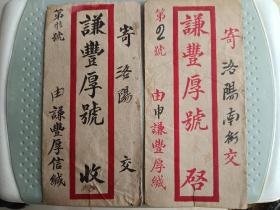 寄洛陽南街交
謙豐厚號啓
第2號
由申謙豐厚緘
寄洛陽 交
謙豐厚號 收
由謙豐厚信緘